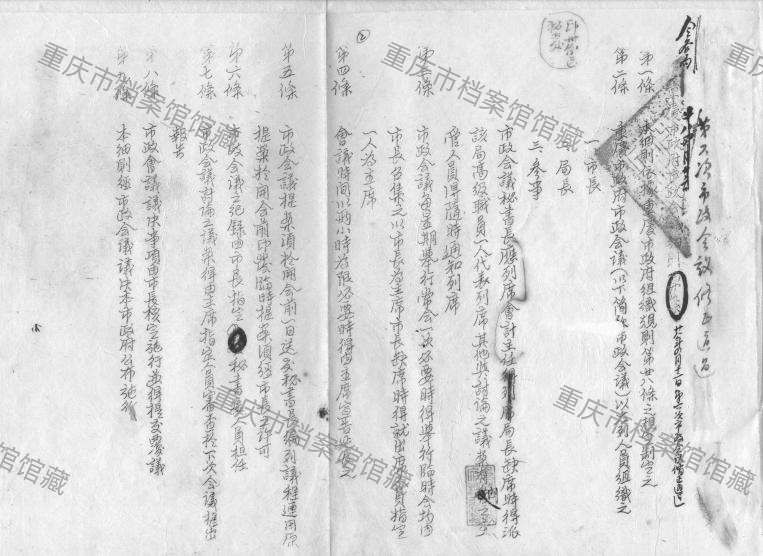 第六次市政会议修正通过
廿八年八月十一日第六次市政会议修正通过
第一條 本細則依據重慶市政府組織規則第廿八條之規定制定之
第二條 重慶市政府市政会議(以下簡称市政会議)以左列人員組織之
一 市長
二 局長
三 参事
市政会議秘書長應列席會計主任得列席局長缺席時得派
該局高級職員一人代表列席其他與討論之議案有
管人員得隨時通知列席
第三條 市政会議每星期舉行常会一次必要時得舉行臨時会均由
市長召集之以市長為主席市長缺席時得就出席人員指定
一人為主席
第四條 會議時間以兩小時為限必要時得由主席宣告延長之
第五條 市政会議提案須於開会前一日送交秘書長編列議程通用原
提案於開会前印發臨時提案須經市長之許可
第六條 市政会議之紀錄由市長指定秘書人員担任
第七條 市政会議討論之議案得由主席指定人員審查於下次会議提出
報告
第八條 市政會議議決事項由市長核定施行並得提交覆議
第九條 本細則經市政会議議決本市政府公布施行
重庆市档案馆馆藏
重庆市档案馆馆藏
重庆市档案馆馆藏
重庆市档案馆馆藏
重庆市档案馆馆藏
馆藏